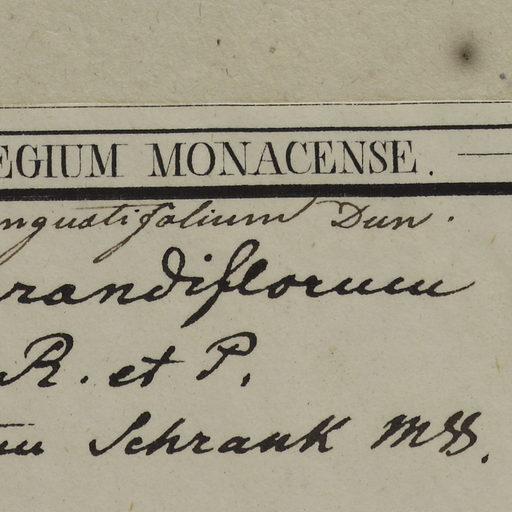 EGIUM MONACENSE.
ngustifolium Dun.
randiflorum
R. et P.
Schrank MSS.